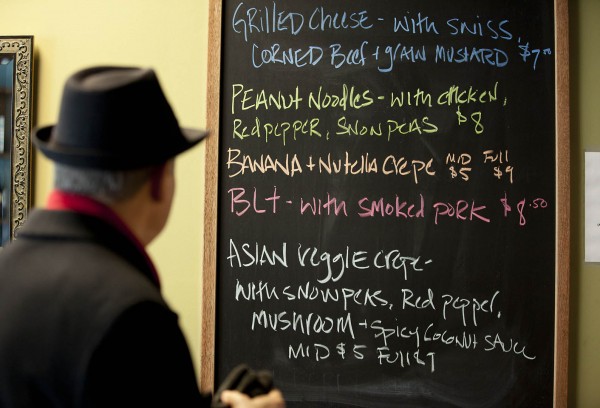 GRilled Cheese - with swiss,
CORNED Beef + grain MUSTARD $7.00
PEANUT Noodles - with chicken,
Red pepper, SNOW peas $8
BANANA + Nutella Crepe MID $5 Full $9
BLT - with smoked pork $8.50
ASIAN veggie crepe -
with snowpeas, Red pepper,
MUSHROOM + spicy coconut sauce
MID $5 FULL $7